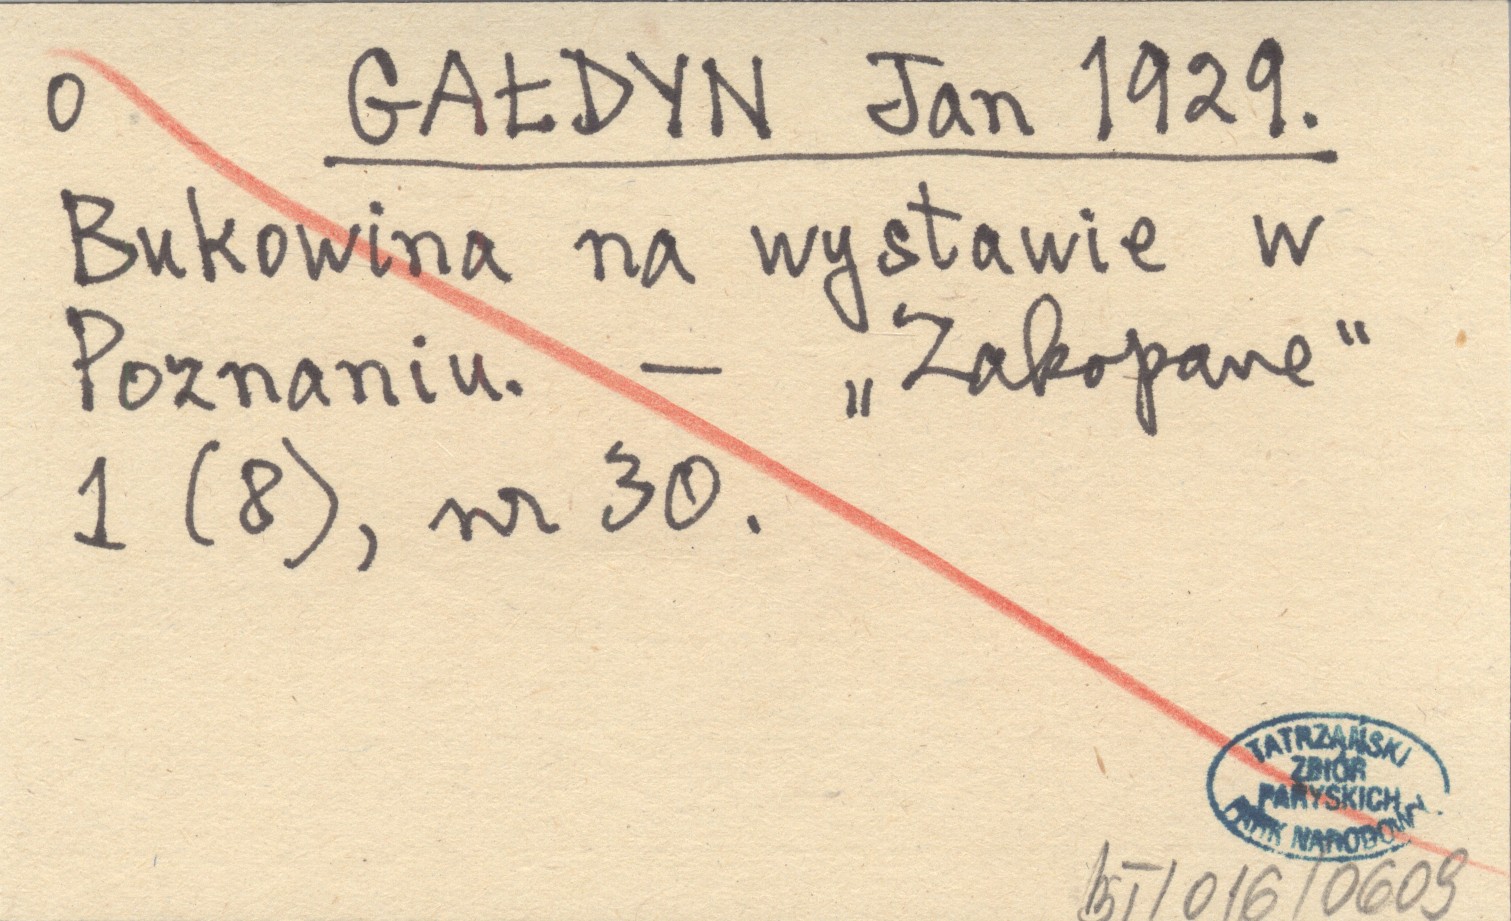 o GAŁDYN Jan 1929.
Bukowina na wystawie w
Poznaniu. — „Zakopane"
1 (8), nr 30.
TATRZAŃSKI
ZBIÓR
PARYSKICH
PARK NARODOWY
/016/0609